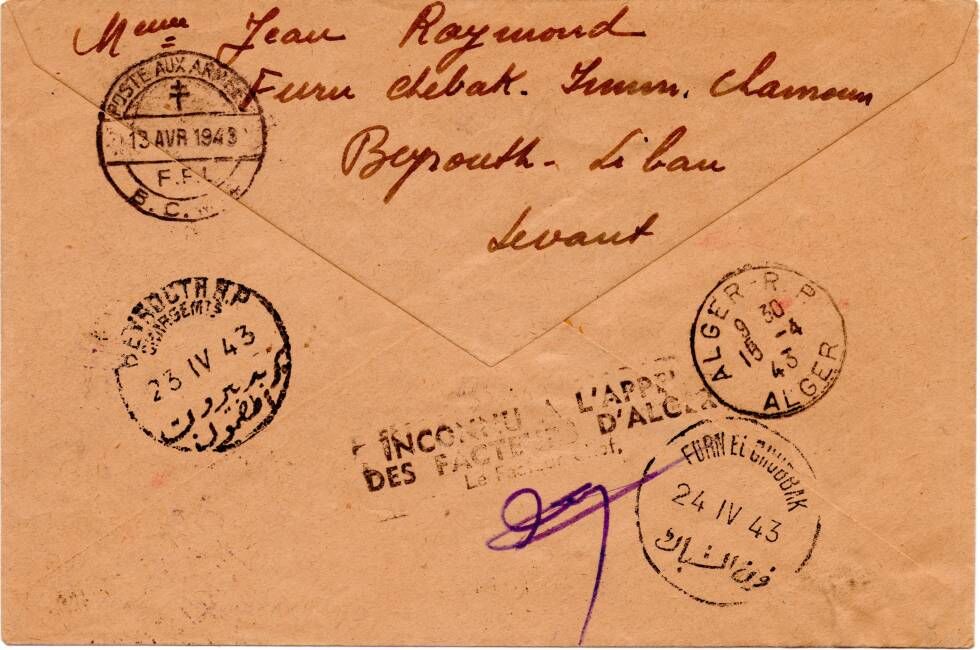 Mme Jean Raymond
Furn chebak. Imm. Chamoun
Beyrouth - Liban
Levant
POSTE AUX ARMÉES
13 AVR 1943
F.F.L.
B.C.
BEYROUTH R.P
CHARGEMTS
23 IV 43
بيروت
ALGER-R.P
9 30
15 -4
43
ALGER
INCONNU A L'APPEL
DES FACTEURS D'ALGER
Le Facteur-Chef,
FURN EL CHUBBAK
24 IV 43
فرن الشباك